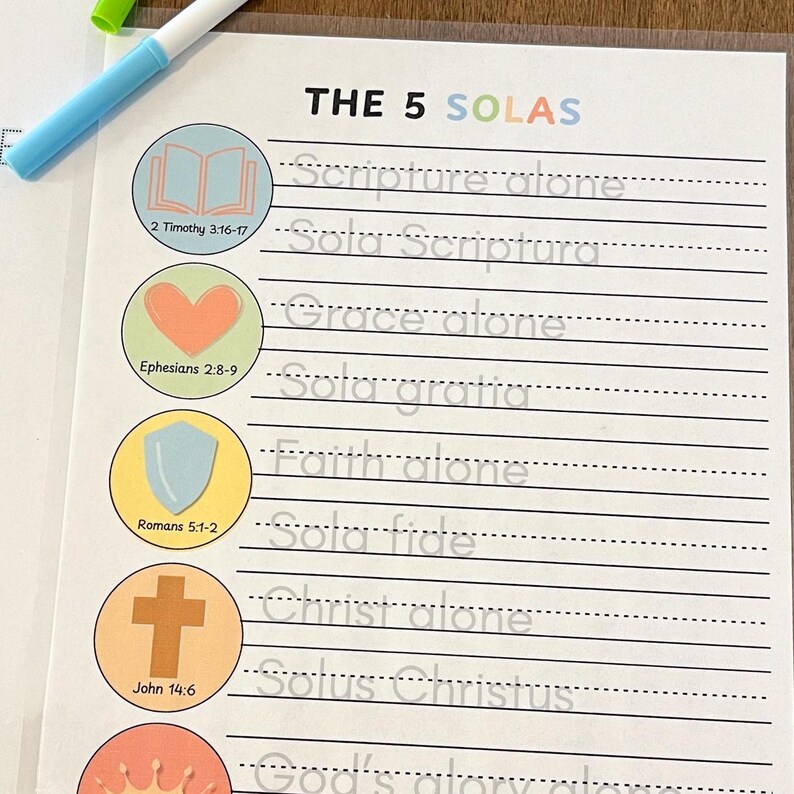 THE 5 SOLAS
2 Timothy 3:16-17
Scripture alone
Sola Scriptura
Ephesians 2:8-9
Grace alone
Sola gratia
Romans 5:1-2
Faith alone
Sola fide
John 14:6
Christ alone
Solus Christus
God's glory alone